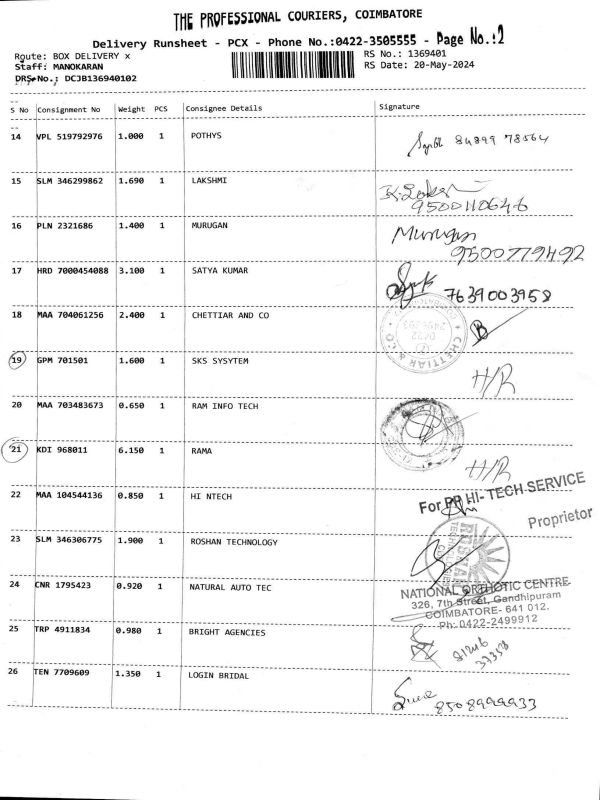 THE PROFESSIONAL COURIERS, COIMBATORE
Delivery Runsheet - PCX - Phone No.:0422-3505555 - Page No.:2
Route: BOX DELIVERY x
RS No.: 1369401
Staff: MANOKARAN
RS Date: 20-May-2024
DRS No.: DCJB136940102
S No Consignment No Weight PCS Consignee Details Signature
14 VPL 519792976 1.000 1 POTHYS 84899 78564
15 SLM 346299862 1.690 1 LAKSHMI
9500110646
16 PLN 2321686 1.400 1 MURUGAN Murugan
9500779492
17 HRD 7000454088 3.100 1 SATYA KUMAR 7639003958
18 MAA 704061256 2.400 1 CHETTIAR AND CO
CHETTIAR & CO
19 GPM 701501 1.600 1 SKS SYSYTEM H/R
20 MAA 703483673 0.650 1 RAM INFO TECH
21 KDI 968011 6.150 1 RAMA H/R
22 MAA 104544136 0.850 1 HI NTECH
For PP HI-TECH SERVICE
Proprietor
23 SLM 346306775 1.900 1 ROSHAN TECHNOLOGY
24 CNR 1795423 0.920 1 NATURAL AUTO TEC
NATIONAL ORTHOTIC CENTRE
326, 7th Street, Gandhipuram
COIMBATORE- 641 012.
Ph: 0422-2499912
25 TRP 4911834 0.980 1 BRIGHT AGENCIES
26 TEN 7709609 1.350 1 LOGIN BRIDAL
8508999933